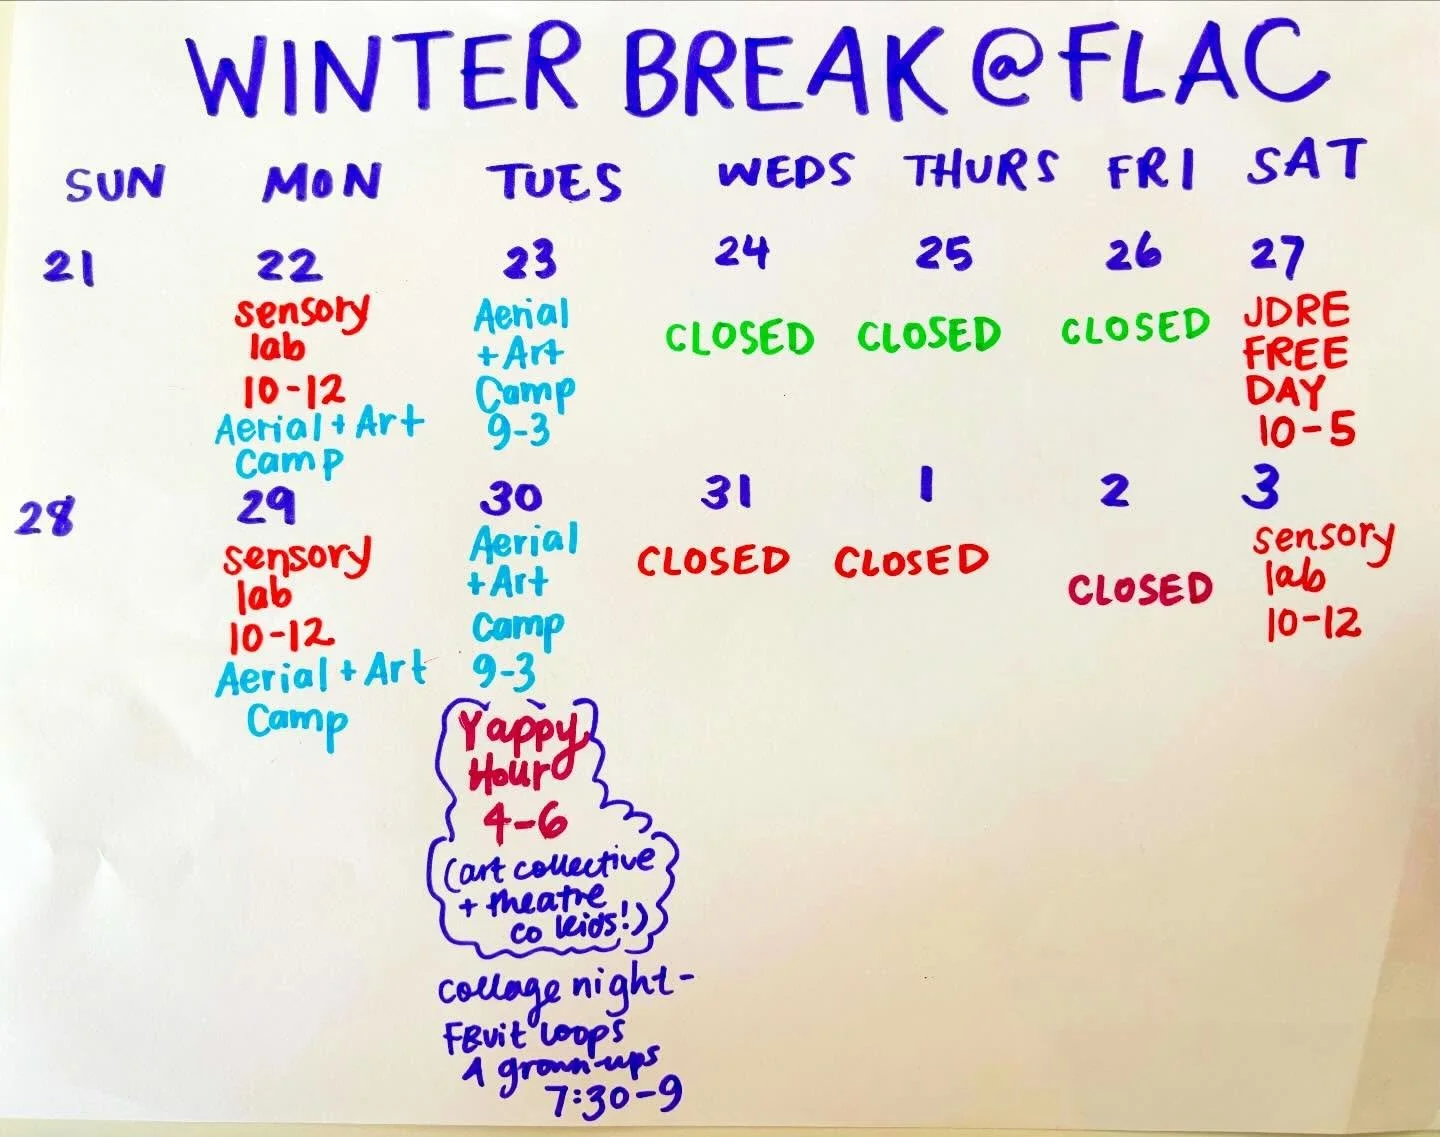 WINTER BREAK @ FLAC
SUN MON TUES WEDS THURS FRI SAT
21 22 23 24 25 26 27
sensory
lab
10-12
Aerial + Art
Camp
Aerial
+ Art
Camp
9-3
CLOSED
CLOSED
CLOSED
JDRE
FREE
DAY
10-5
28 29 30 31 1 2 3
sensory
lab
10-12
Aerial + Art
Camp
Aerial
+ Art
Camp
9-3
Yappy
Hour
4-6
(art collective
+ theatre
co kids!)
collage night-
Fruit loops
4 grown-ups
7:30-9
CLOSED
CLOSED
CLOSED
sensory
lab
10-12